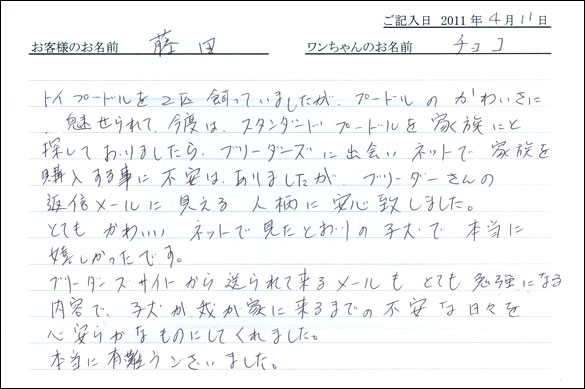 ご記入日 2011年4月11日
お客様のお名前 藤田 ワンちゃんのお名前 チョコ
トイプードルを2匹飼っていましたが、プードルのかわいさに
魅せられて、今度は、スタンダードプードルを家族にと
探しておりましたら、ブリーダーズに出会いネットで家族を
購入する事に不安は、ありましたがブリーダーさんの
返信メールに見える人柄に安心致しました。
とてもかわいいネットで見たとおりの子犬で本当に
嬉しかったです。
ブリーダーズサイトから送られて来るメールもとても勉強になる
内容で、子犬が我が家に来るまでの不安な日々を
心安らかなものにしてくれました。
本当に有難うございました。